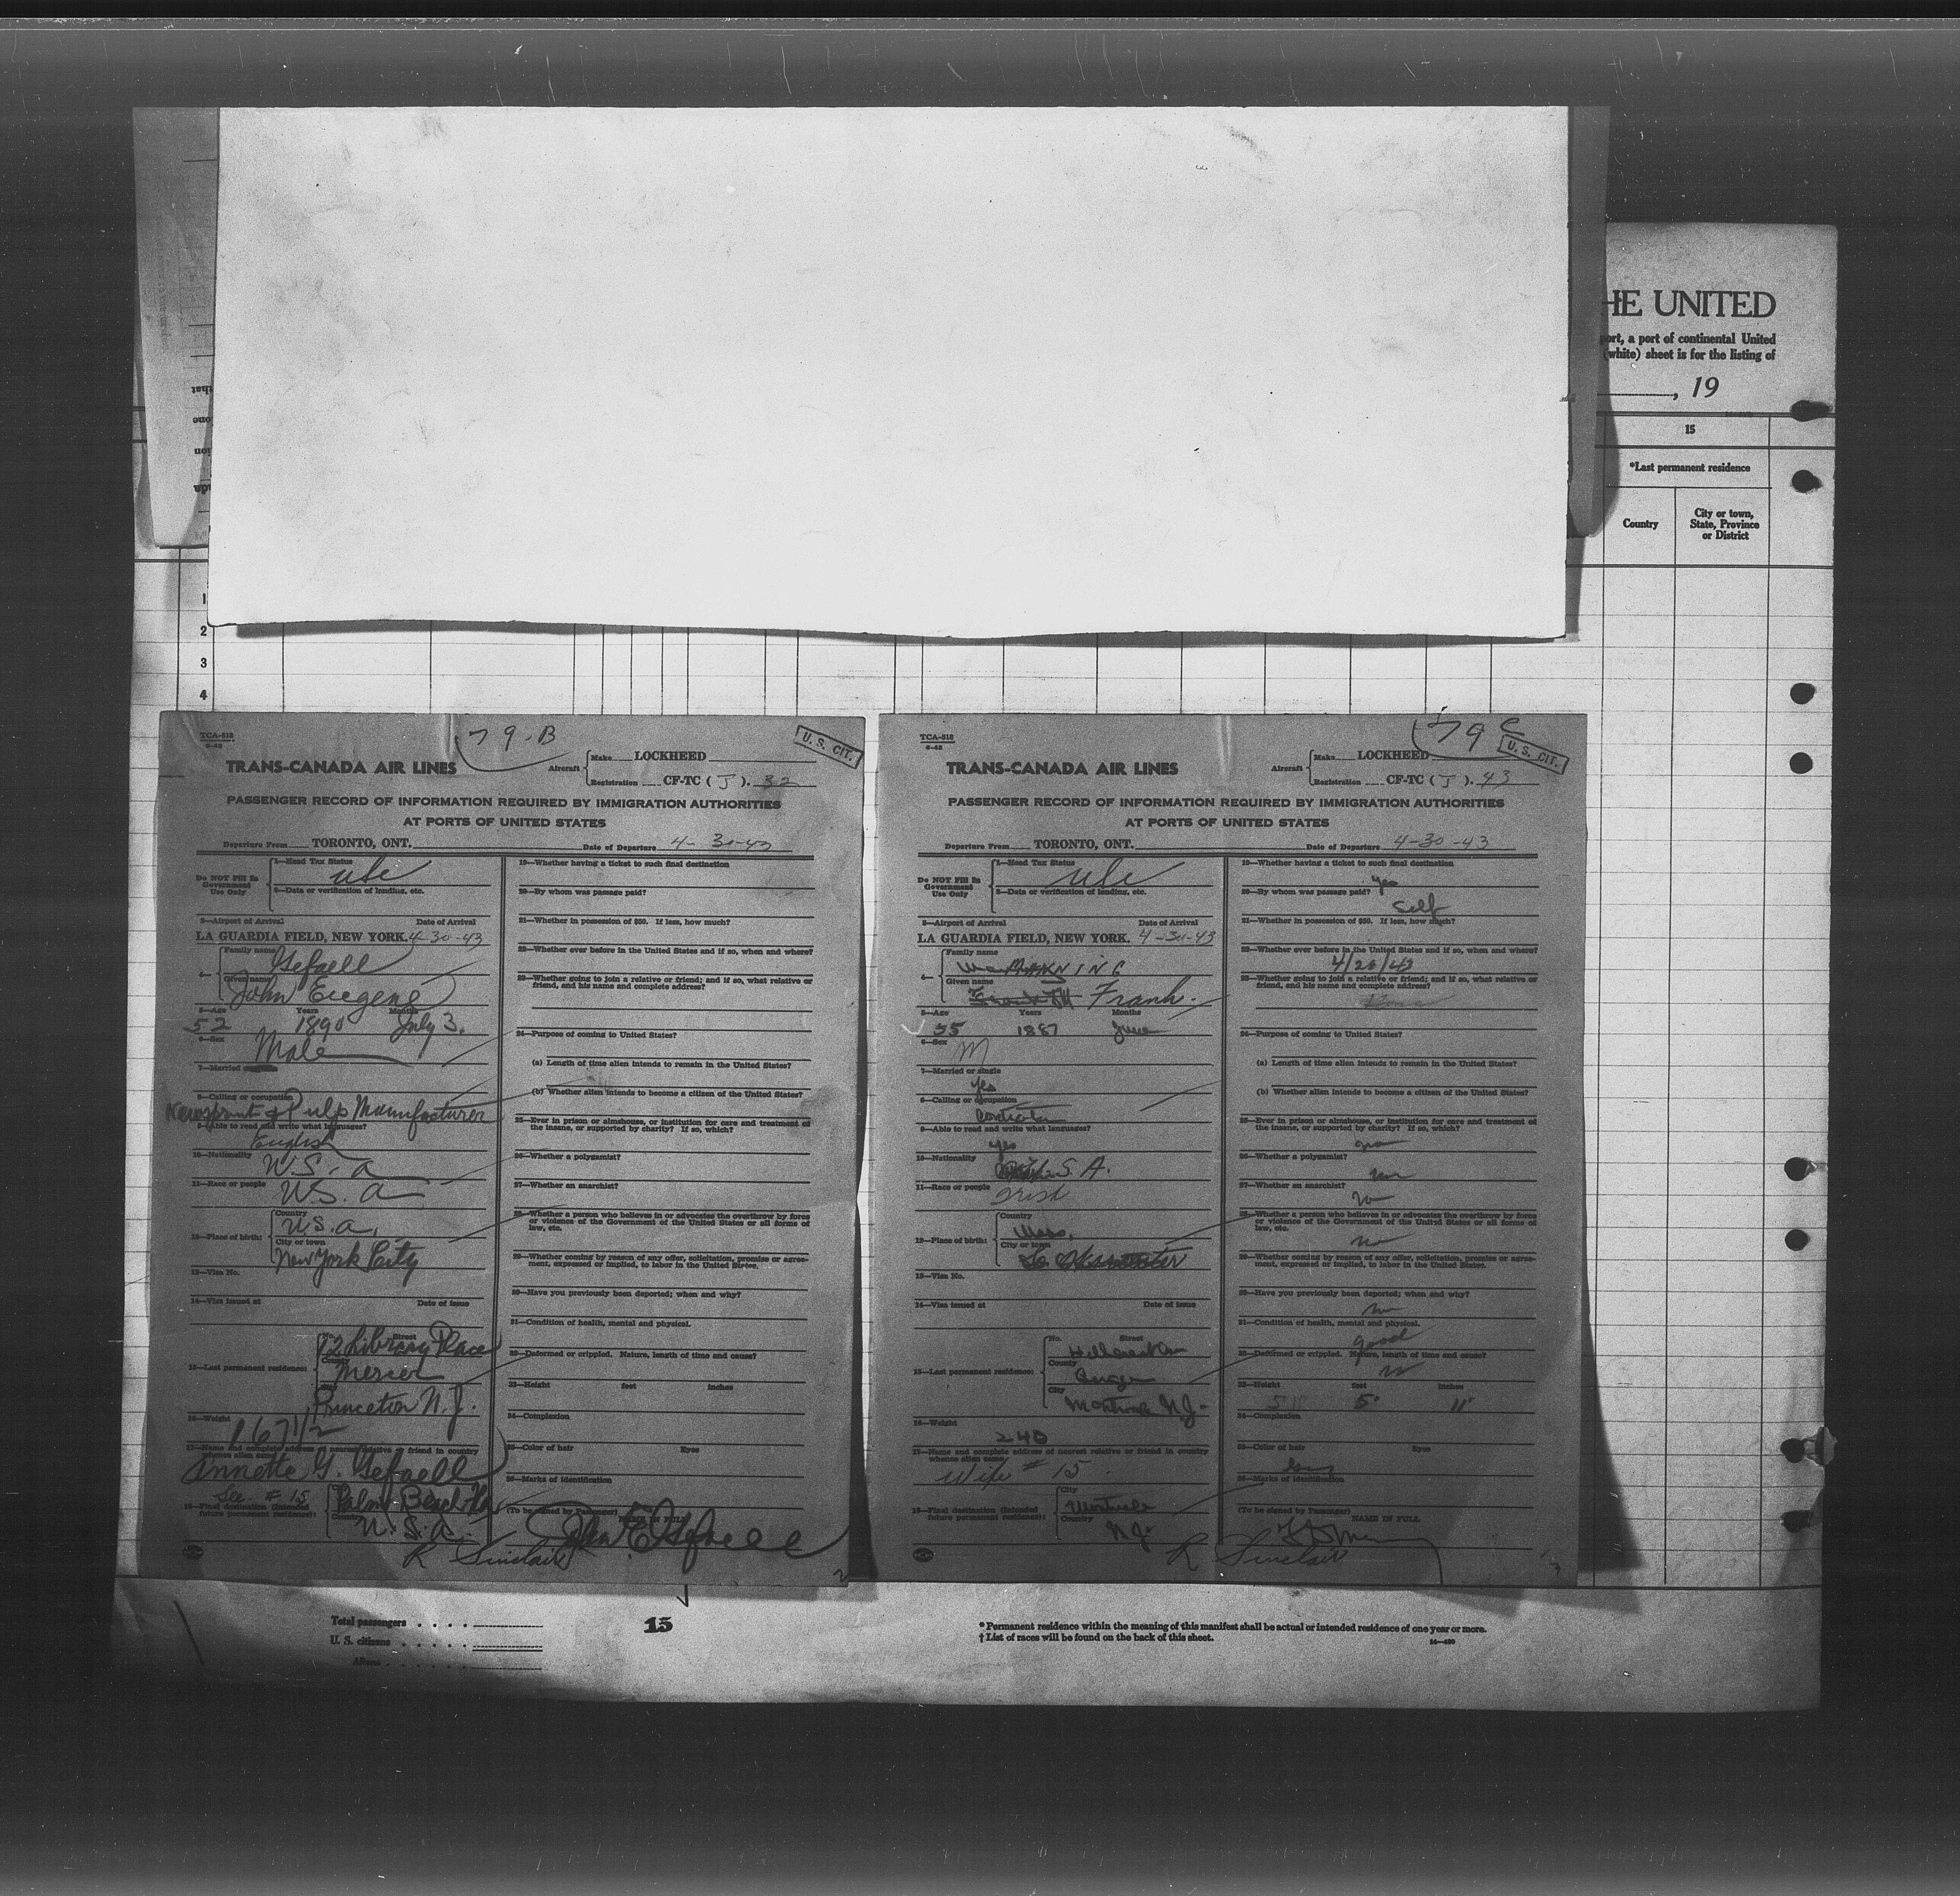 HE UNITED
port, a port of continental United
(white) sheet is for the listing of
, 19
15
*Last permanent residence
Country
City or town,
State, Province
or District
1
2
3
4
TCA-518
6-42
79-B
U. S. CIT.
TRANS-CANADA AIR LINES
Aircraft
Make LOCKHEED
Registration CF-TC ( J ). 32
PASSENGER RECORD OF INFORMATION REQUIRED BY IMMIGRATION AUTHORITIES
AT PORTS OF UNITED STATES
Departure From TORONTO, ONT. Date of Departure 4-30-43
Do NOT Fill In
Government
Use Only
1—Head Tax Status
USC
2—Data or verification of landing, etc.
3—Airport of Arrival Date of Arrival
LA GUARDIA FIELD, NEW YORK. 4-30-43
4—
Family name
Gefaell
Given name
John Eugene
5—Age Years Months
52 1890 July 3.
6—Sex
Male
7—Married
8—Calling or occupation
Newsprint & Pulp Manufacturer
9—Able to read and write what languages?
English
10—Nationality
U.S.A
11—Race or people
U.S.A
12—Place of birth:
Country
U.S.A.
City or town
New York City
13—Visa No.
14—Visa issued at Date of issue
15—Last permanent residence:
No. Street
72 Library Place
County
Mercer
City
Princeton N.J.
16—Weight
167 1/2
17—Name and complete address of nearest relative or friend in country
whence alien came
Annette G. Gefaell
See # 15
18—Final destination (Intended
future permanent residence):
Palm Beach Fla
Country
U.S.A.
19—Whether having a ticket to such final destination
20—By whom was passage paid?
21—Whether in possession of $50. If less, how much?
22—Whether ever before in the United States and if so, when and where?
23—Whether going to join a relative or friend; and if so, what relative or
friend, and his name and complete address?
24—Purpose of coming to United States?
(a) Length of time alien intends to remain in the United States?
(b) Whether alien intends to become a citizen of the United States?
25—Ever in prison or almshouse, or institution for care and treatment of
the insane, or supported by charity? If so, which?
26—Whether a polygamist?
27—Whether an anarchist?
28—Whether a person who believes in or advocates the overthrow by force
or violence of the Government of the United States or all forms of
law, etc.
29—Whether coming by reason of any offer, solicitation, promise or agree-
ment, expressed or implied, to labor in the United States.
30—Have you previously been deported; when and why?
31—Condition of health, mental and physical.
32—Deformed or crippled. Nature, length of time and cause?
33—Height feet inches
34—Complexion
35—Color of hair Eyes
36—Marks of identification
(To be signed by Passenger)
NAME IN FULL
John E Gefaell
R Sinclair
2
TCA-518
6-42
79 C
U. S. CIT.
TRANS-CANADA AIR LINES
Aircraft
Make LOCKHEED
Registration CF-TC ( J ). 43
PASSENGER RECORD OF INFORMATION REQUIRED BY IMMIGRATION AUTHORITIES
AT PORTS OF UNITED STATES
Departure From TORONTO, ONT. Date of Departure 4-30-43
Do NOT Fill In
Government
Use Only
1—Head Tax Status
USC
2—Data or verification of landing, etc.
3—Airport of Arrival Date of Arrival
LA GUARDIA FIELD, NEW YORK. 4-30-43
4—
Family name
Given name
Frank
5—Age Years Months
55 1887 June
6—Sex
M
7—Married or single
Yes
8—Calling or occupation
9—Able to read and write what languages?
yes
10—Nationality
S. A.
11—Race or people
Irish
12—Place of birth:
Country
Mass.
City or town
13—Visa No.
14—Visa issued at Date of issue
15—Last permanent residence:
No. Street
County
City
N.J.
16—Weight
240
17—Name and complete address of nearest relative or friend in country
whence alien came
Wife # 15
18—Final destination (Intended
future permanent residence):
City
Montvale
Country
N.J.
19—Whether having a ticket to such final destination
yes
20—By whom was passage paid?
Self
21—Whether in possession of $50. If less, how much?
22—Whether ever before in the United States and if so, when and where?
23—Whether going to join a relative or friend; and if so, what relative or
friend, and his name and complete address?
24—Purpose of coming to United States?
(a) Length of time alien intends to remain in the United States?
(b) Whether alien intends to become a citizen of the United States?
25—Ever in prison or almshouse, or institution for care and treatment of
the insane, or supported by charity? If so, which?
no
26—Whether a polygamist?
no
27—Whether an anarchist?
no
28—Whether a person who believes in or advocates the overthrow by force
or violence of the Government of the United States or all forms of
law, etc.
no
29—Whether coming by reason of any offer, solicitation, promise or agree-
ment, expressed or implied, to labor in the United States.
30—Have you previously been deported; when and why?
no
31—Condition of health, mental and physical.
good
32—Deformed or crippled. Nature, length of time and cause?
no
33—Height feet inches
5' 11"
34—Complexion
35—Color of hair Eyes
36—Marks of identification
(To be signed by Passenger)
NAME IN FULL
R Sinclair
Total passengers
U. S. citizens
Aliens
15
* Permanent residence within the meaning of this manifest shall be actual or intended residence of one year or more.
† List of races will be found on the back of this sheet.